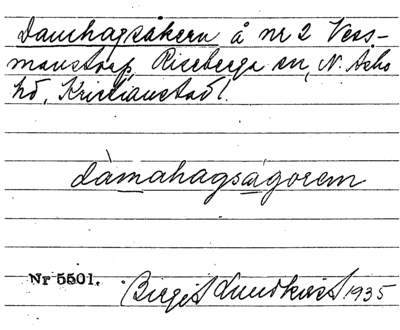 Damhagsåkern å nr 2 Vess-
manstorp, Riseberga sn, N. Åsbo
hd, Kristianstad l.
dàmahagságorem
Nr 5501. Birgit Lundkvist 1935